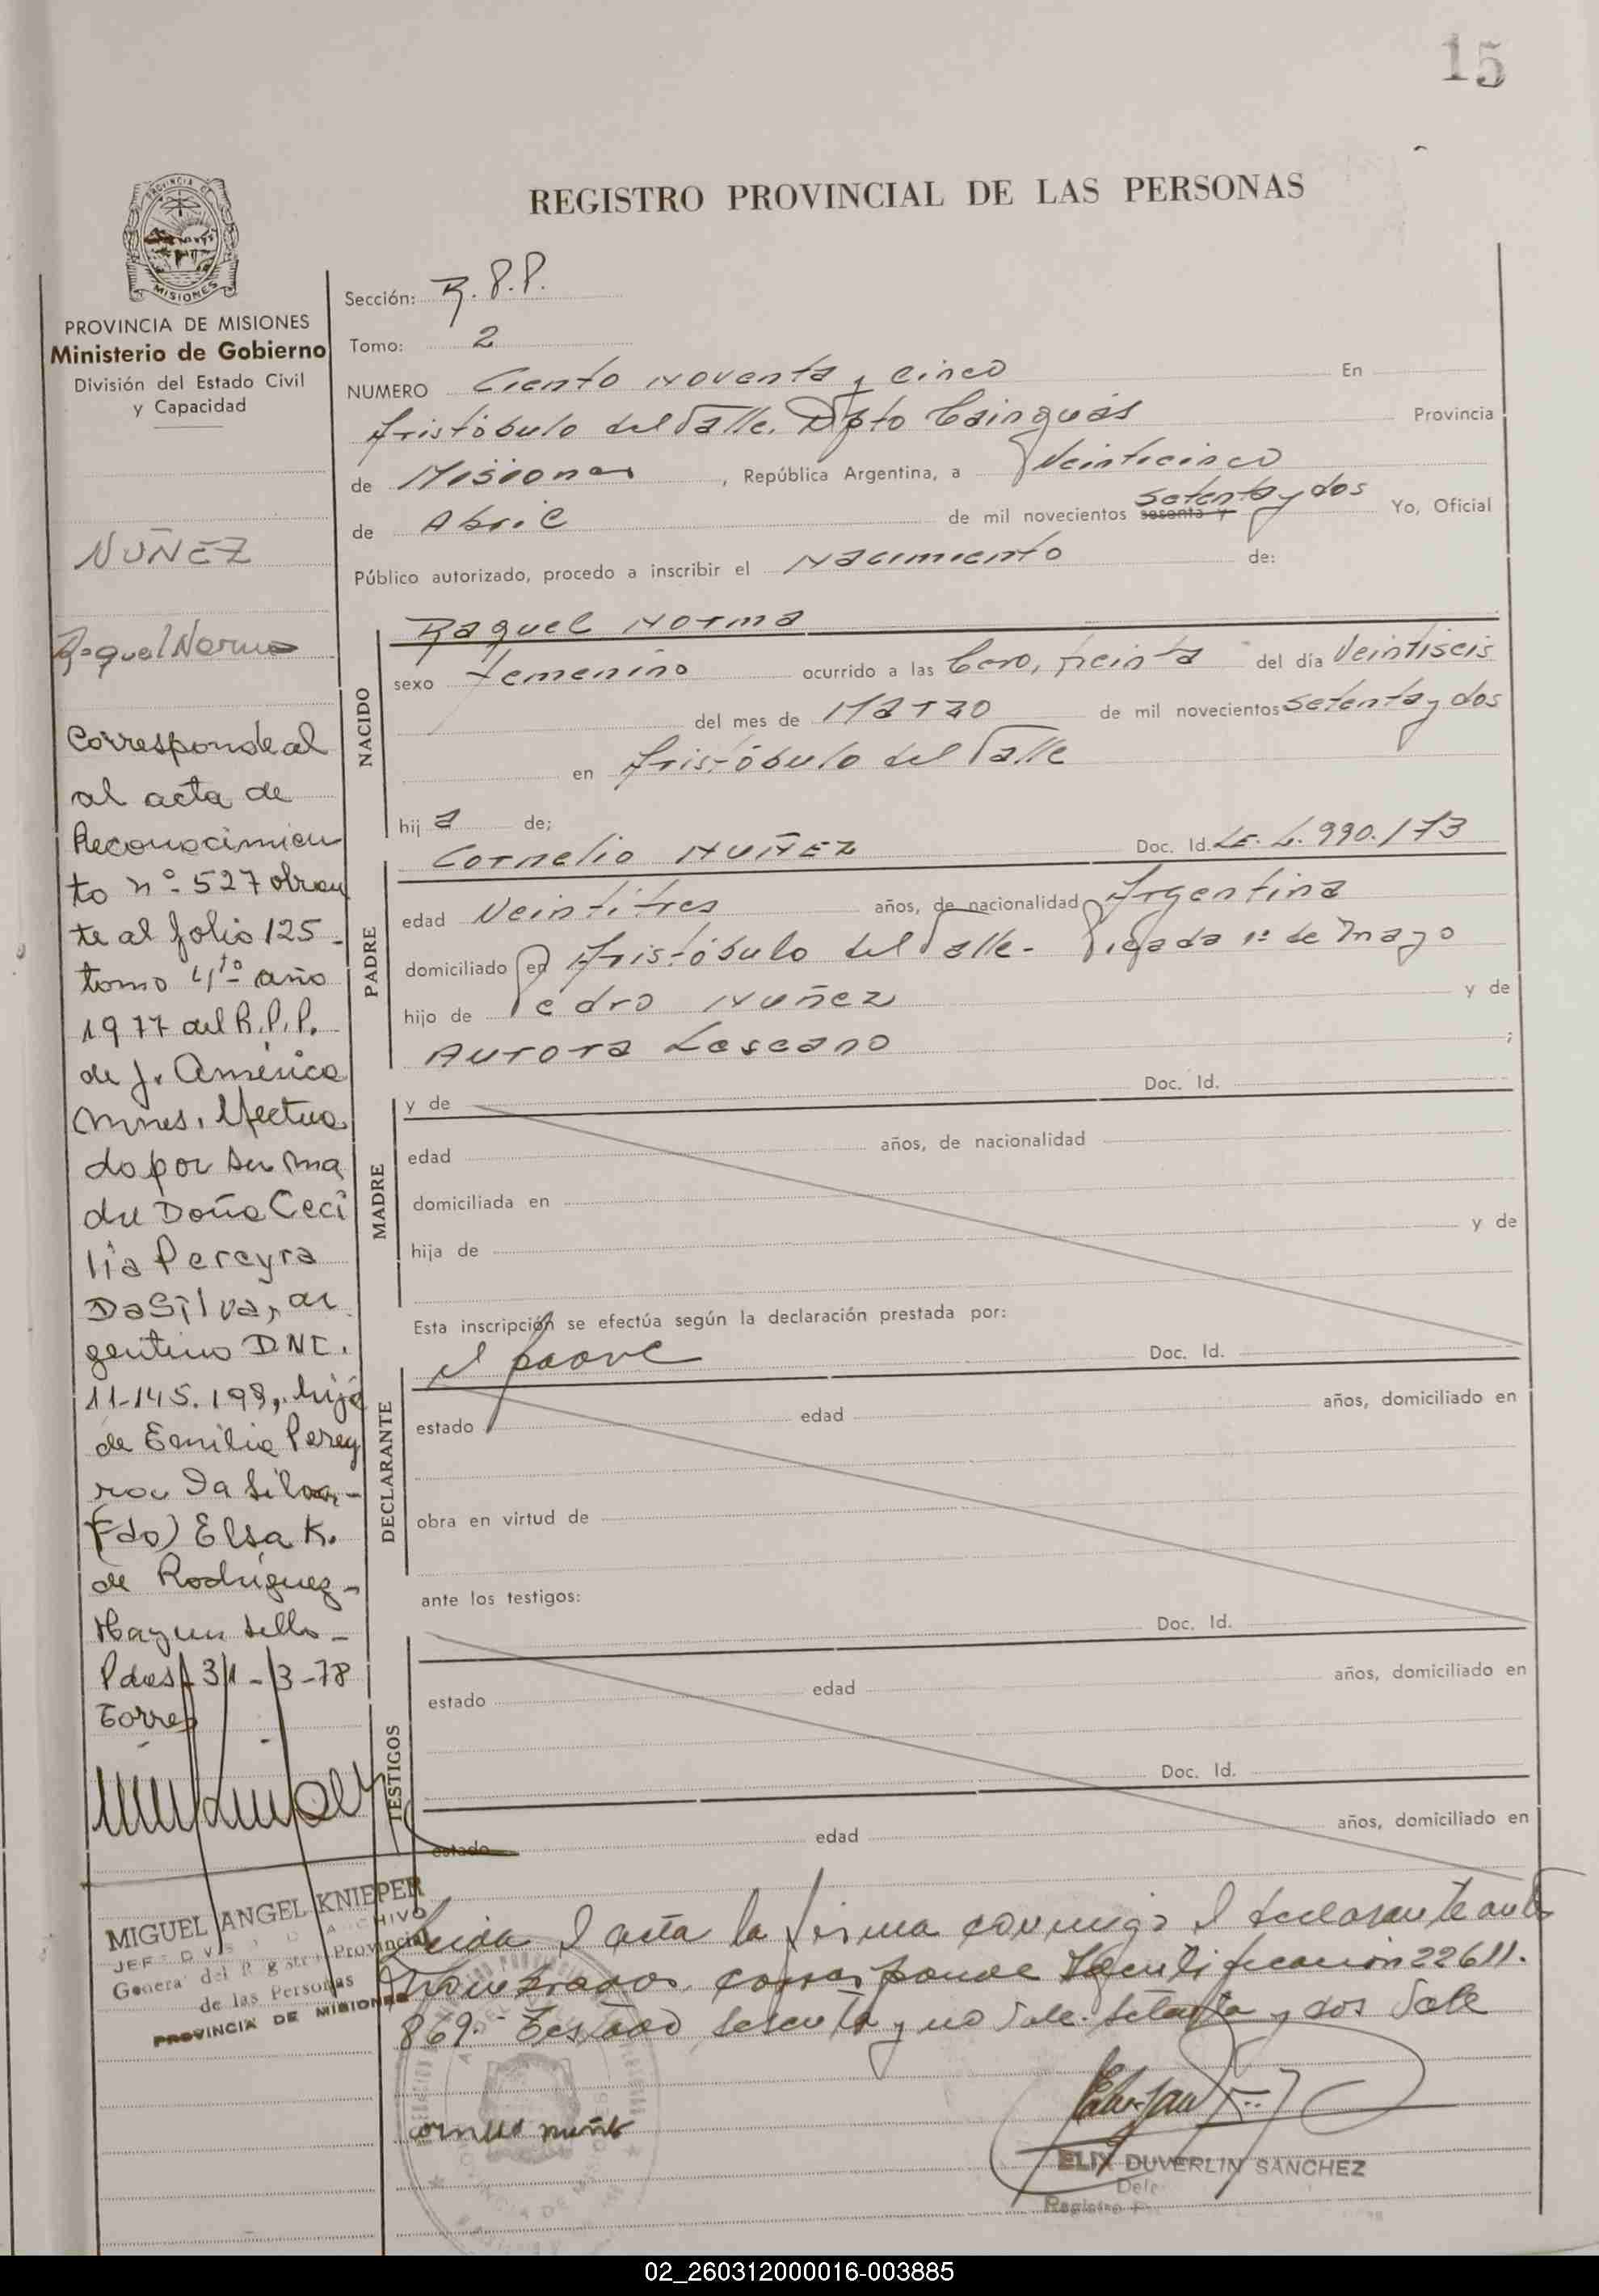 15
REGISTRO PROVINCIAL DE LAS PERSONAS
PROVINCIA DE
MISIONES
PROVINCIA DE MISIONES
Ministerio de Gobierno
División del Estado Civil
y Capacidad
NUÑEZ
Raquel Norma
Corresponde al
al acta de
Reconocimien
to nº 527 obran
te al folio 125
tomo 4to año
1977 del R.P.P.
de J. América
Mnes. Efectua
do por su ma
dre Doña Ceci
lia Pereyra
DaSilva, ar
gentina DNI.
11.145.198, hija
de Emilia Perey
ra Da Silva-
(Fdo) Elsa K.
de Rodriguez-
Hay un sello-
Pdas, 31-3-78
Torres
MIGUEL ANGEL KNIEPER
General del Registro Provincial
de las Personas
PROVINCIA DE MISIONES
Sección: R.P.P.
Tomo: 2
NUMERO Ciento noventa y cinco En
Aristóbulo del Valle, Dpto Cainguás Provincia
de Misiones, República Argentina, a Veinticinco
de Abril de mil novecientos sesenta y setenta y dos Yo, Oficial
Público autorizado, procedo a inscribir el Nacimiento de:
NACIDO
Raquel Norma
sexo femenino ocurrido a las Cero, treinta del día Veintiseis
del mes de Marzo de mil novecientos setenta y dos
en Aristóbulo del Valle
hij a de;
PADRE
Cornelio NUÑEZ Doc. Id. LE. 4.990.173
edad Veintitres años, de nacionalidad Argentina
domiciliado en Aristóbulo del Valle- Picada 1º de Mayo
hijo de Pedro Nuñez y de
Aurora Lescano ;
MADRE
y de Doc. Id.
edad años, de nacionalidad
domiciliada en
hija de y de
Esta inscripción se efectúa según la declaración prestada por:
DECLARANTE
el padre Doc. Id.
estado edad años, domiciliado en
obra en virtud de
ante los testigos:
TESTIGOS
Doc. Id.
estado edad años, domiciliado en
Doc. Id.
estado edad años, domiciliado en
Leida el acta la firma conmigo el declarante ante
nombrados, corresponde Identificación 22611.
869.- Testado sesenta y no Vale. Setenta y dos Vale
cornelio nuñez
ELIX DUVERLIN SANCHEZ
02_260312000016-003885